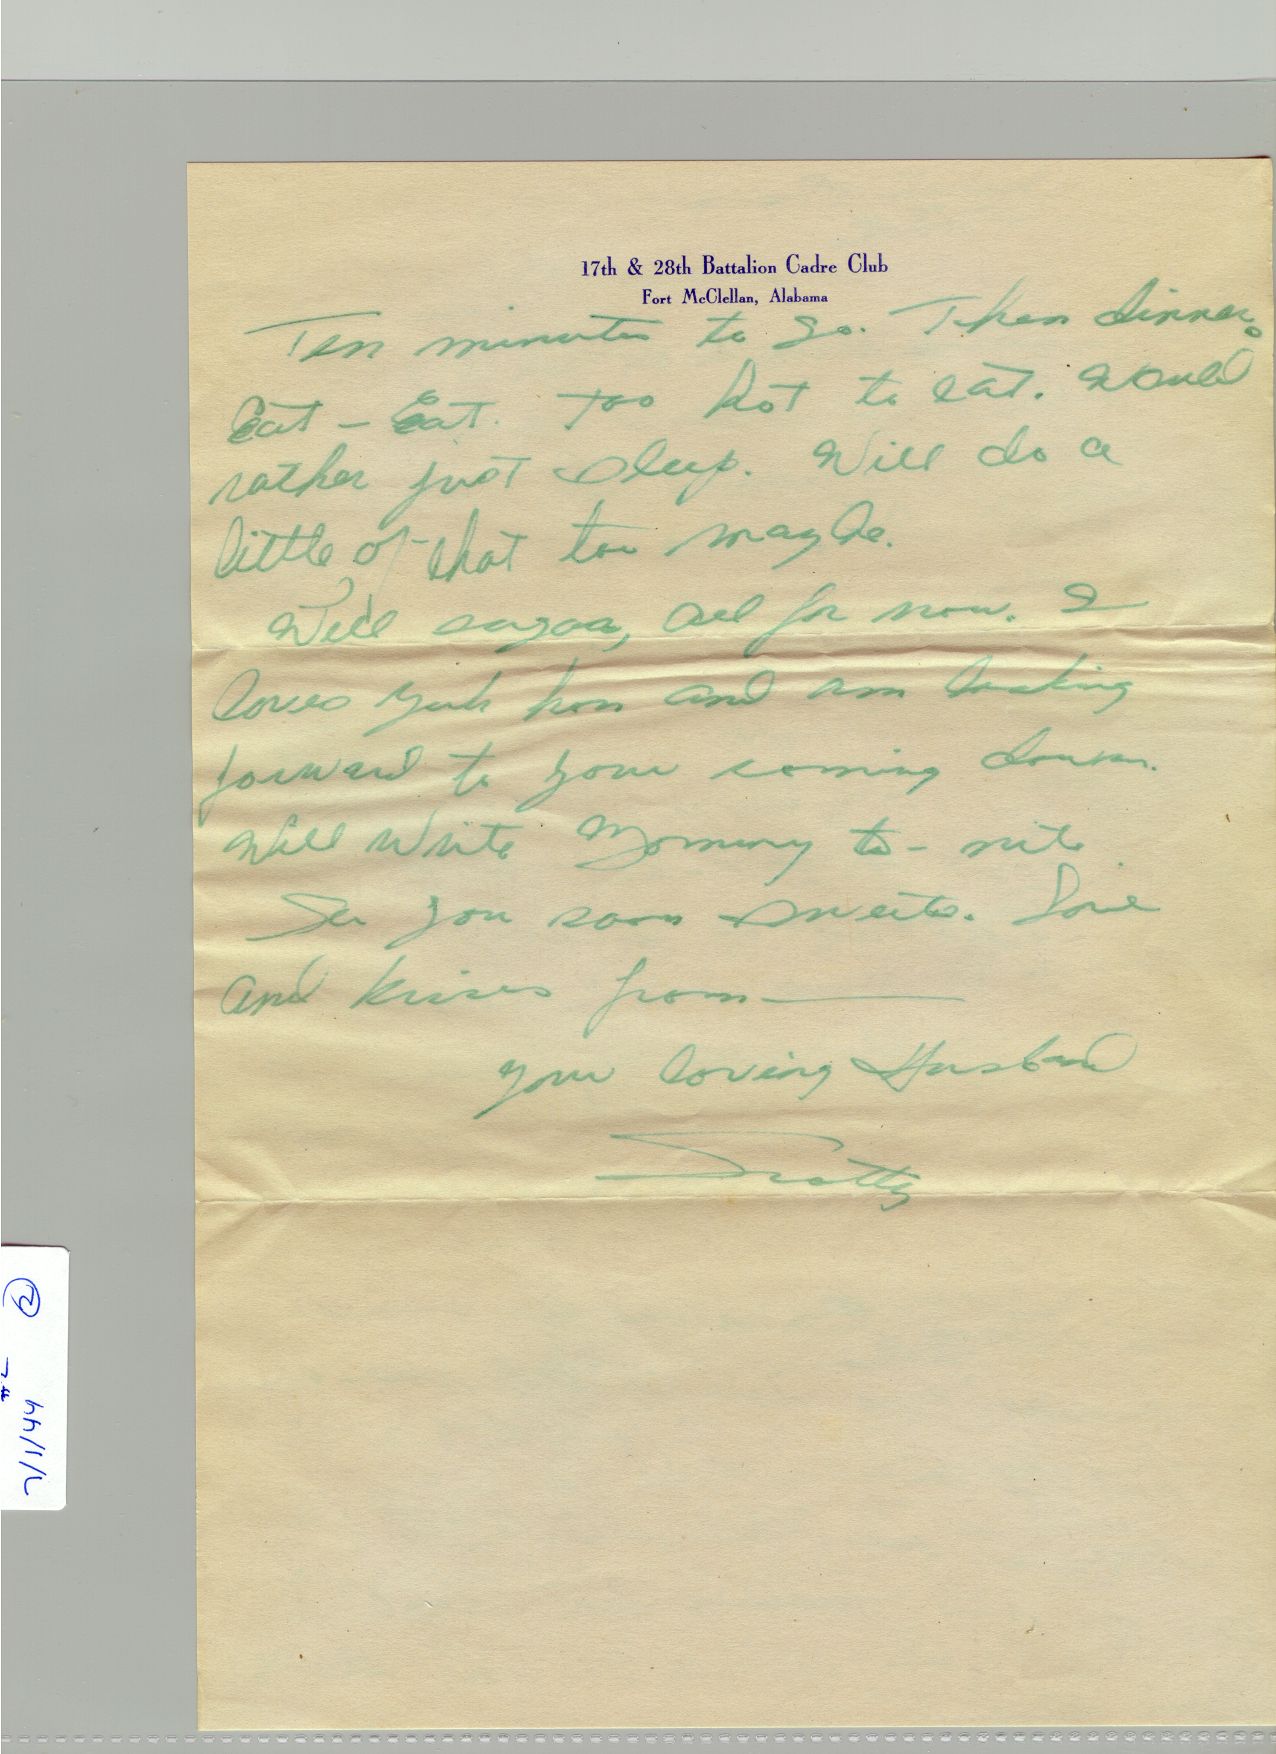 17th & 28th Battalion Cadre Club
Fort McClellan, Alabama
Ten minutes to go. Then dinner.
Eat – Eat. Too hot to eat. Would
rather just sleep. Will do a
little of that too maybe.
Well sugar, all for now. I
loves yuh hon and am looking
forward to your coming down.
Will write Mommy to-nite.
See you soon sweets. Love
and kisses from —
Your loving Husband
Scotty
7/1/44
#2